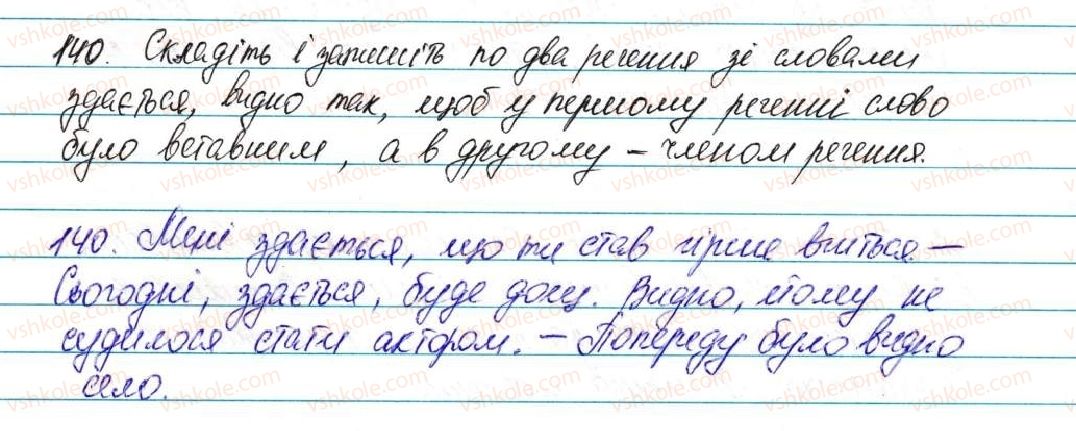 140. Складіть і запишіть по два речення зі словами
здається, видно так, щоб у першому реченні слово
було вставним, а в другому – членом речення.
140. Мені здається, що ти став гірше вчиться –
Сьогодні, здається, буде дощ. Видно, йому не
судилося стати актором. – Попереду було видно
село.